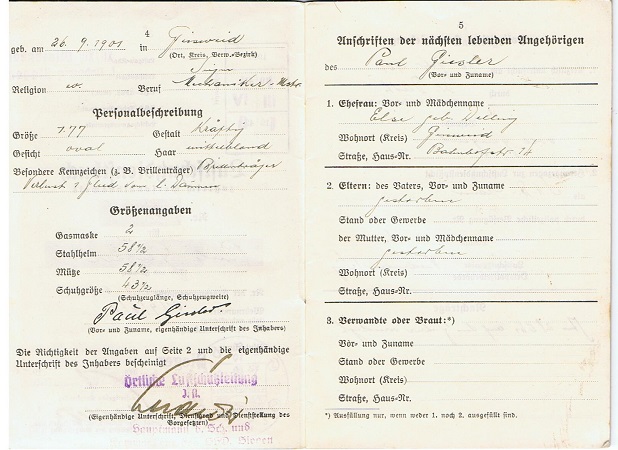 4
geb. am 26. 9. 1901 in
(Ort, Kreis, Verw.-Bezirk)
Religion ev. Beruf Mechaniker-Mstr.
Personalbeschreibung
Größe 1.77 Gestalt kräftig
Gesicht oval Haar mittelblond
Besondere Kennzeichen (z. B. Brillenträger) Brillenträger
Verlust 1 Glied vom l. Daumen
Größenangaben
Gasmaske 2
Stahlhelm 58½
Mütze 58½
Schuhgröße 43½
(Schuhzeuglänge, Schuhzeugweite)
Paul
(Vor- und Zuname, eigenhändige Unterschrift des Inhabers)
Die Richtigkeit der Angaben auf Seite 2 und die eigenhändige
Unterschrift des Inhabers bescheinigt
Örtliche Luftschutzleitung
J. A.
(Eigenhändige Unterschrift, Dienstgrad und Dienststellung des
Vorgesetzten)
Hauptmann d. Sch. und
Siegen
5
Anschriften der nächsten lebenden Angehörigen
des Paul
(Vor- und Zuname)
1. Ehefrau: Vor- und Mädchenname
Else geb.
Wohnort (Kreis)
Straße, Haus-Nr. Bahnhofstr. 14
2. Eltern: des Vaters, Vor- und Zuname
gestorben
Stand oder Gewerbe
der Mutter, Vor- und Mädchenname
gestorben
Wohnort (Kreis)
Straße, Haus-Nr.
3. Verwandte oder Braut:*)
Vor- und Zuname
Stand oder Gewerbe
Wohnort (Kreis)
Straße, Haus-Nr.
*) Ausfüllung nur, wenn weder 1. noch 2. ausgefüllt sind.